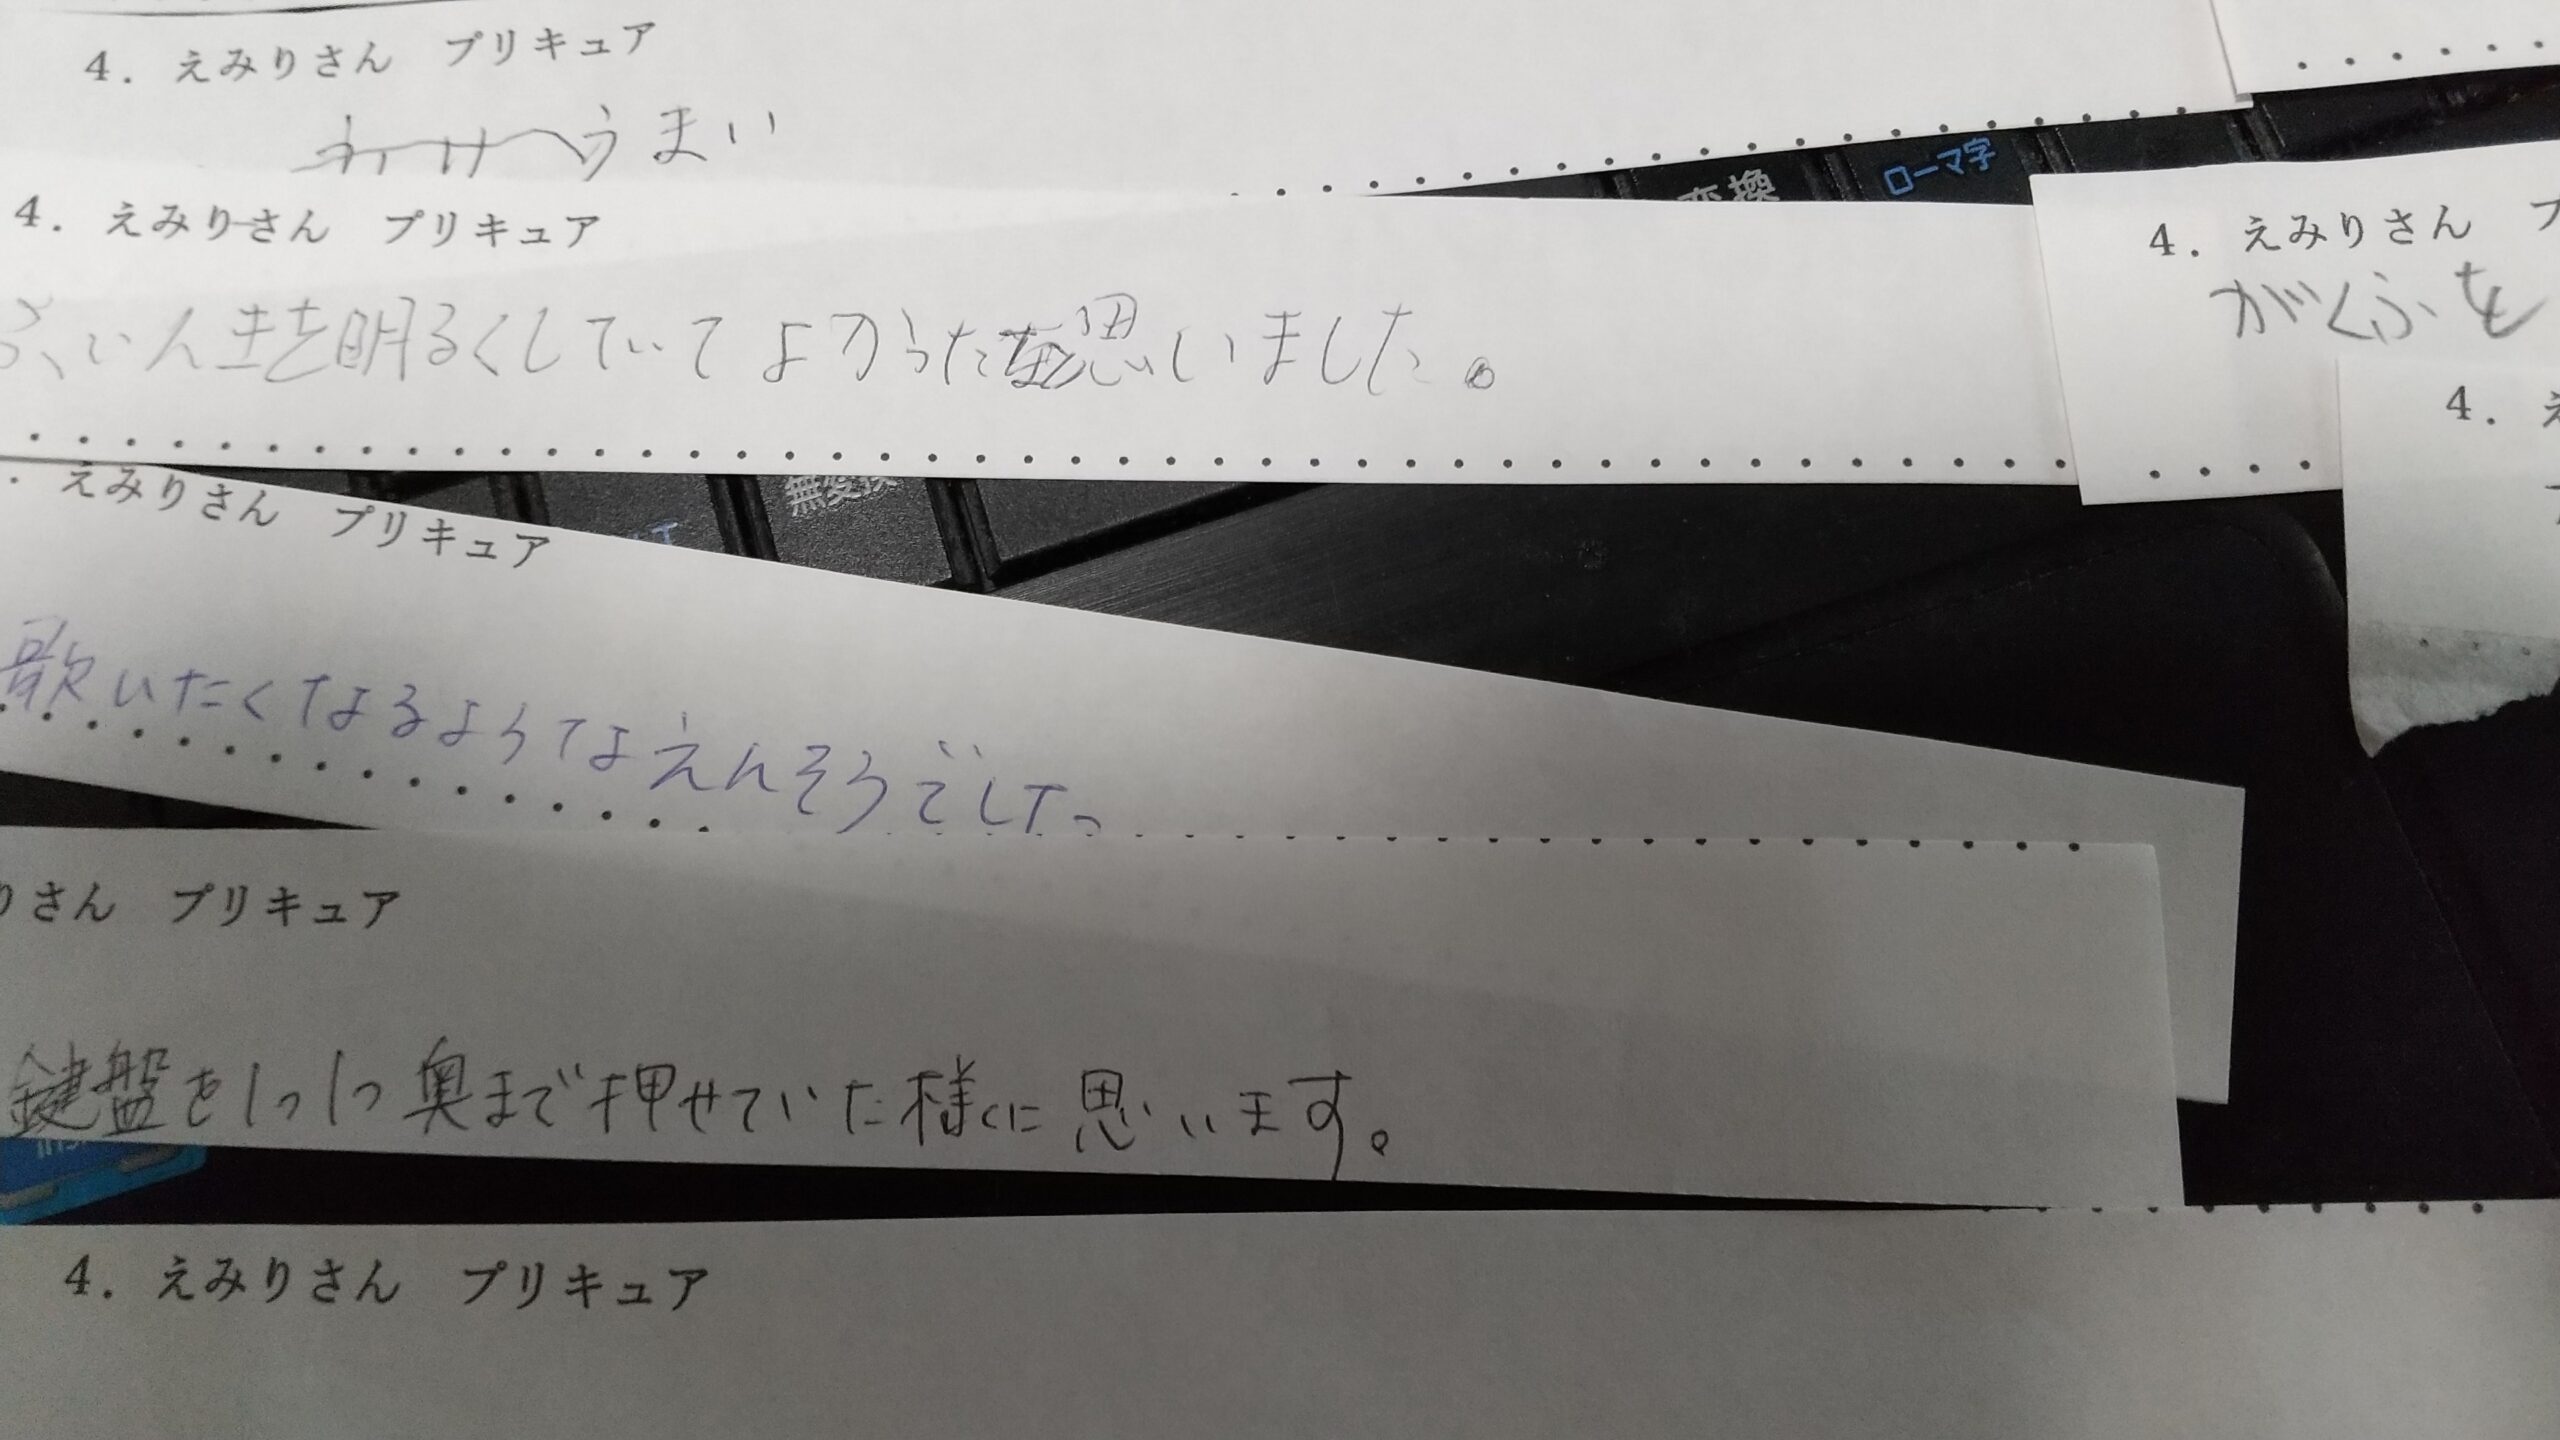 4. えみりさん プリキュア
うまい
変換
ローマ字
4. えみりさん プリキュア
人生を明るくしていてよかった思いました。
4. えみりさん プ
がくふを
4. え
無変換
. えみりさん プリキュア
歌いたくなるようなえんそうでした。
りさん プリキュア
鍵盤を1つ1つ奥まで押せていた様に思います。
4. えみりさん プリキュア